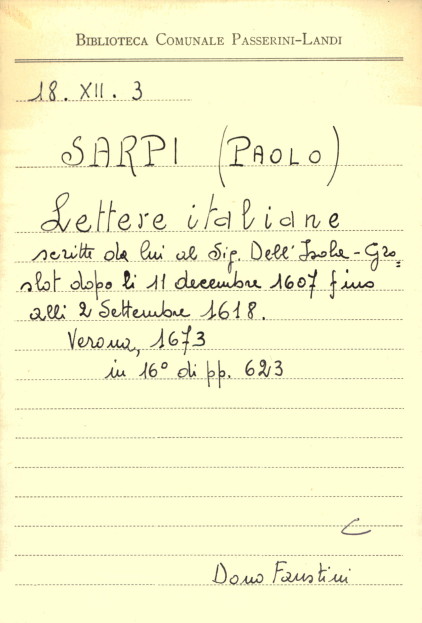 BIBLIOTECA COMUNALE PASSERINI-LANDI
18. XII. 3
SARPI (PAOLO)
Lettere italiane
scritte da lui al Sig. Dell'Isola-Gro=
slot dopo li 11 decembre 1607 fino
alli 2 Settembre 1618.
Verona, 1673
in 16° di pp. 623
C
Dono Faustini